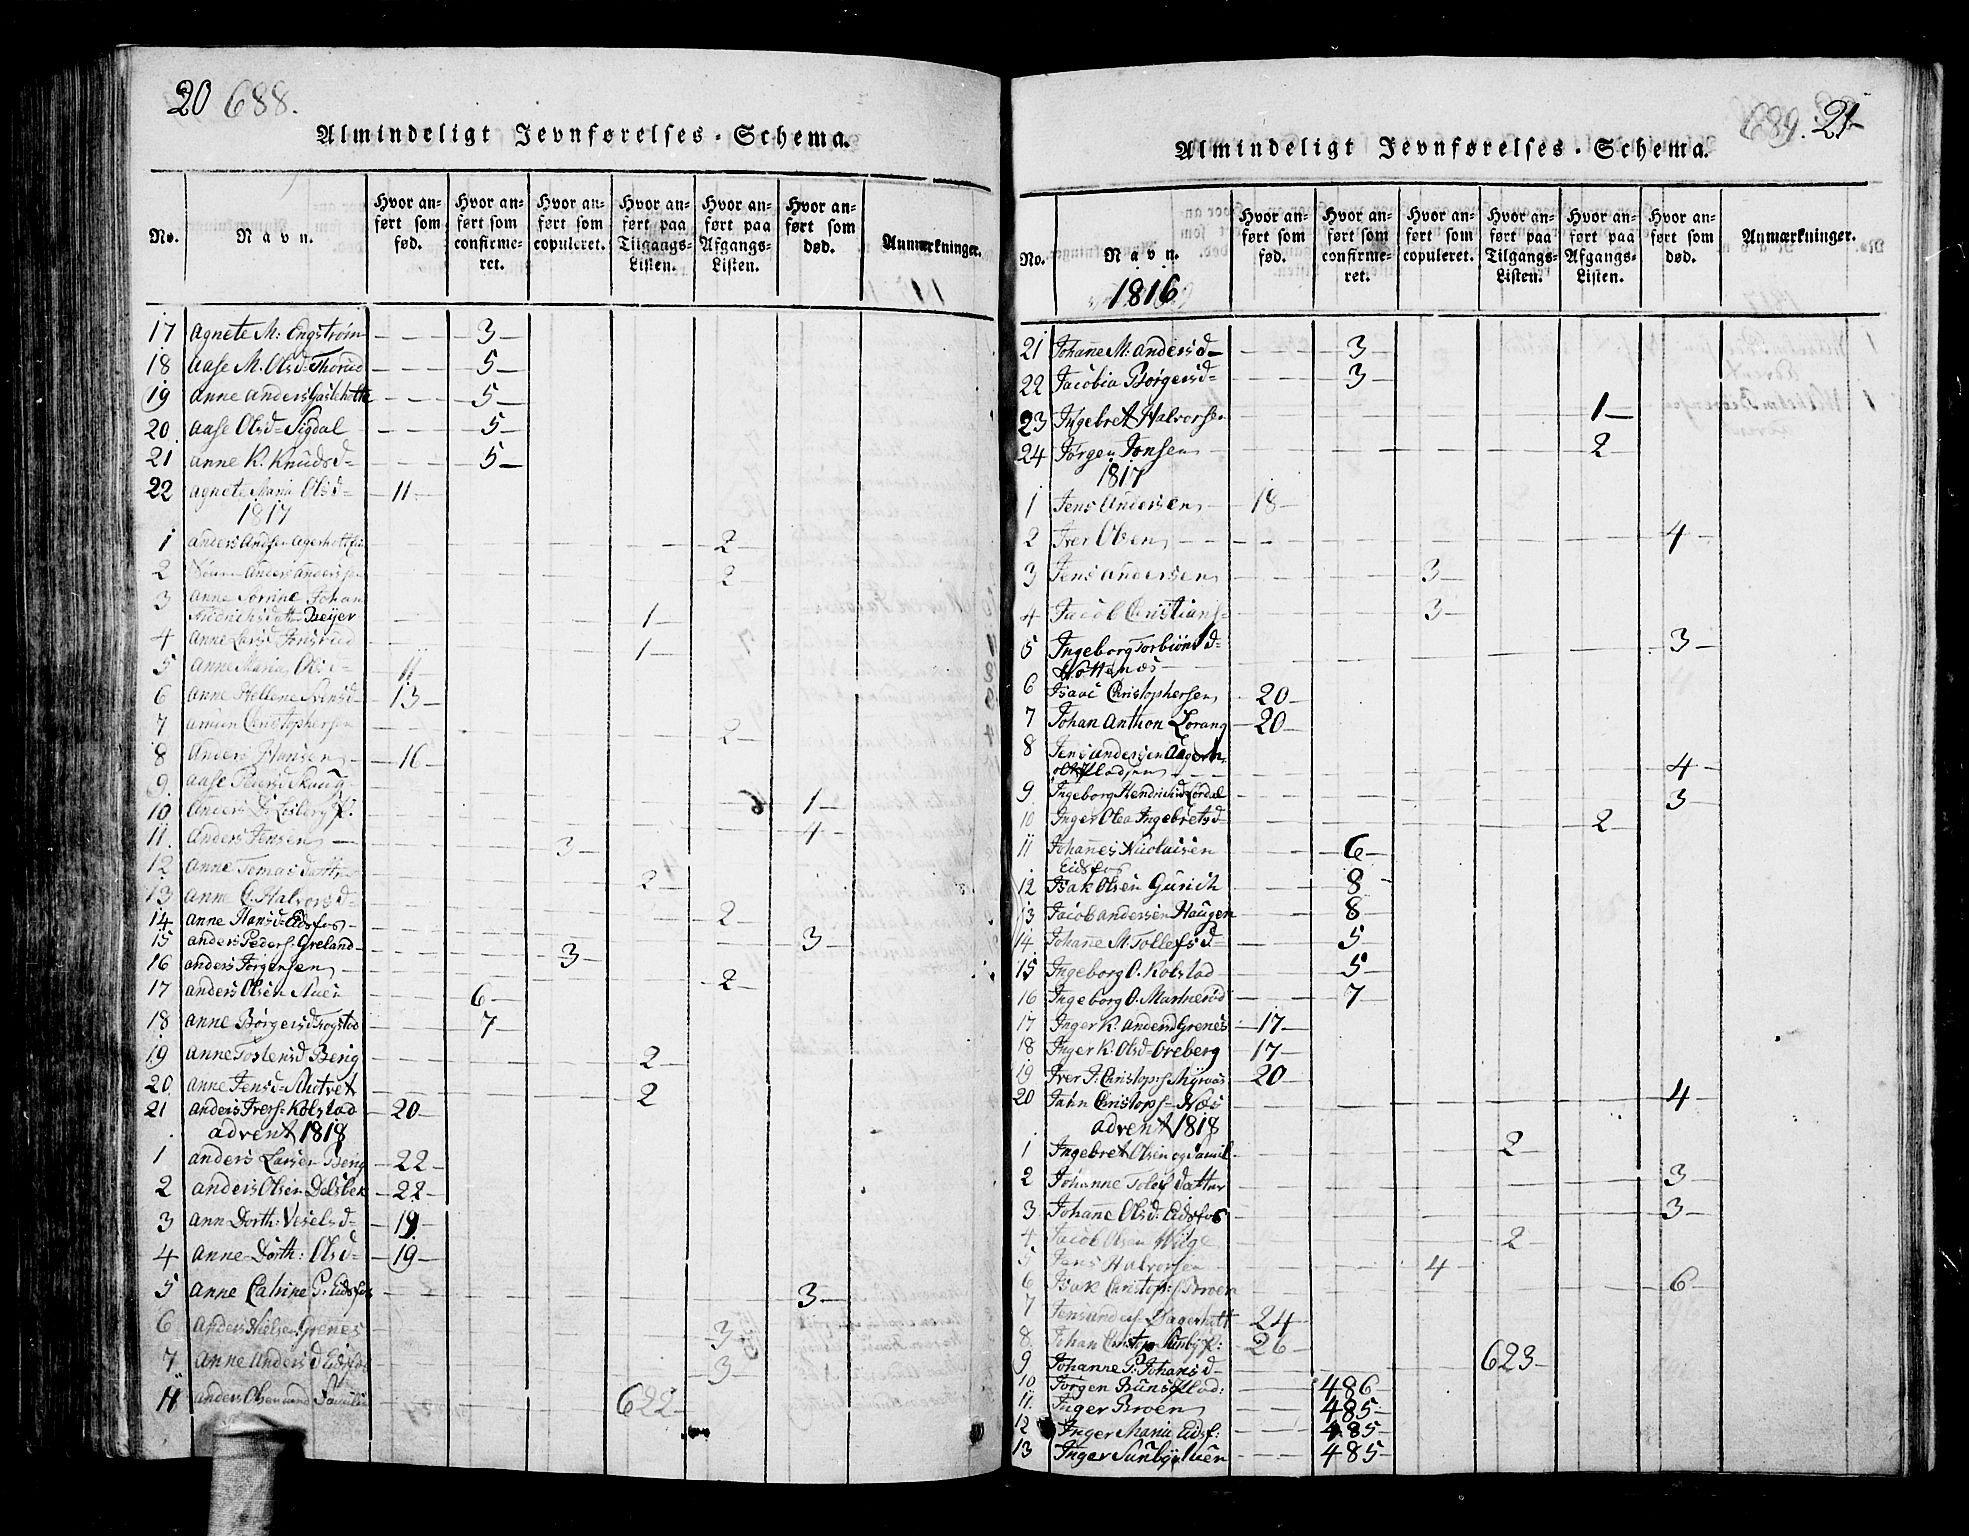 20 688.
Almindeligt Jevnførelses-Schema.
No.
Navn.
Hvor anført som fød.
Hvor anført som confirmeret.
Hvor anført som copuleret.
Hvor anført paa Tilgangs-Listen.
Hvor anført paa Afgangs-Listen.
Hvor anført som død.
Anmærkninger.
17 Agnete M: Engstrøm 3
18 Aase M. Olsd= Thorud 5
19 Anne Anders 5
20 Aase Olsd= Sigdal 5
21 Anne K. Knudsd= 5
22 Agnete Maria Olsd= 11
1817
1 Anders 2
2 Anders Anders 2
3 Anne Johan
Fridrichsdatter Beÿer 1
4 Anne Larsd 1
5 Anne Maria Olsd= 11
6 Anne Hellene 13
7 Christophersen 2
8 Anders Hansen 16
9 Aase
10 Anders 6 1
11 Anders Jensen 3 4
12 Anne Tomasdatter
13 Anne C. Halvorsd= 2
14 Anne Hansd= Eidsfos 2
15 Anders Peders: Greland 3
16 Anders Jørgensen 3
17 Anders Olsen Muen 6 2
18 Anne Børgersd 7
19 Anne Tostensd Berig 2
20 Anne Jensd= 2
21 Anders Ivers: Kolstad 20
advent 1818
1 Anders Larsen Berig 22
2 Anders Olsen Delsbek 22
3 Ann Dorth: Veselsd= 19
4 Anne Dorth: Olsd= 19
5 Anne Catrine P. Eidsfos 3
6 Anders Nielsen Grenes 3
7 Anne Andersd Eidsfos 3
11 Anders Olsen 622
689. 21
Almindeligt Jevnførelses-Schema.
No.
Navn.
1816
Hvor anført som fød.
Hvor anført som confirmeret.
Hvor anført som copuleret.
Hvor anført paa Tilgangs-Listen.
Hvor anført paa Afgangs-Listen.
Hvor anført som død.
Anmærkninger.
21 Johanne M: Andersd 3
22 Jacobia Børgersd= 3
23 Ingebret Halvorsen 1
24 Jørgen Jonsen 2
1817
1 Jens Andersen 18
2 Iver Olsen 4
3 Jens Andersen 3
4 Jacob Christians= 3
5 Ingeborg Torbiønsd= 3
6 Isaac Christophersen 20
7 Johan Anthon Lorang 20
8 Jens Andersen 4
9 Ingeborg Hendrichsd 3
10 Inger Olea Ingebretsd= 2
11 Johannes Nicolaisen 6
Eidsfos
12 Isak Olsen Gurich 8
13 Jacob Andersen Haugen 8
14 Johanne M. Tollefsd= 5
15 Ingeborg O. Kolstad 5
16 Ingeborg O. 7
17 Inger K. Andersd Grenes 17
18 Inger K. Olsd= Oreberg 17
19 Iver J: Christop: 20
20 Jahn Christops= Næs 4
advent 1818
1 Ingebret Olsen og Famil 2
2 Johanne Tolef datter 3
3 Johanne Olsd: Eidsfos 3
4 Jacob Olsen 2
5 Jens Halvorsen 4
6 Isak Christop: Broen 6
7 Jens Anders 24
8 Johan Christop 26
9 Johanne P: Johansd= 623
10 Jørgen 486
11 Inger Broen 485
12 Inger Maria Eidsf: 485
13 Inger 485